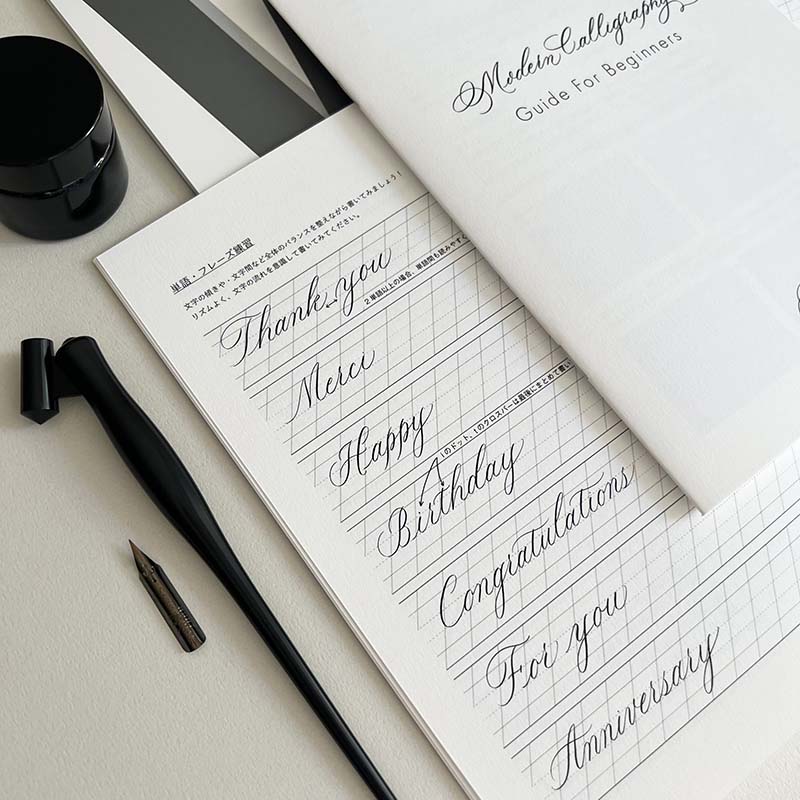 Modern Calligraphy
Guide For Beginners
単語・フレーズ練習
文字の傾きや・文字間など全体のバランスを整えながら書いてみましょう!
リズムよく、文字の流れを意識して書いてみてください。
Thank you
2単語以上の場合、単語間も読みやすく
Merci
Happy
iのドット、tのクロスバーは最後にまとめて書い
Birthday
Congratulations
For you
Anniversary